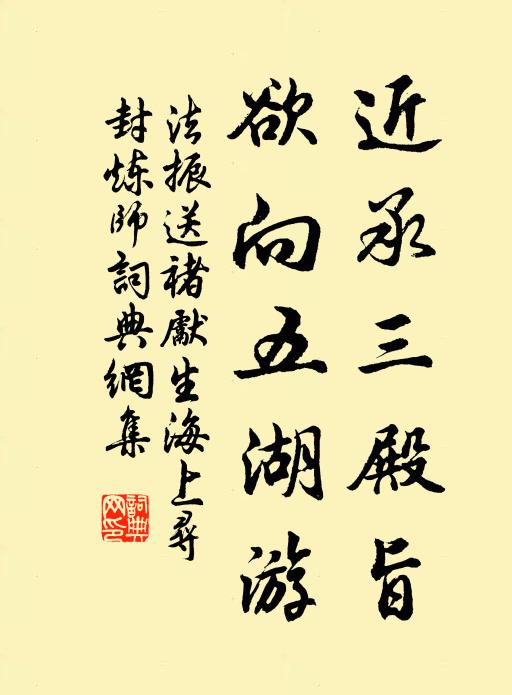 近承三殿旨
欲向五湖游
法振送褚獻生海上尋
封炼师詞典網集
詞典網印